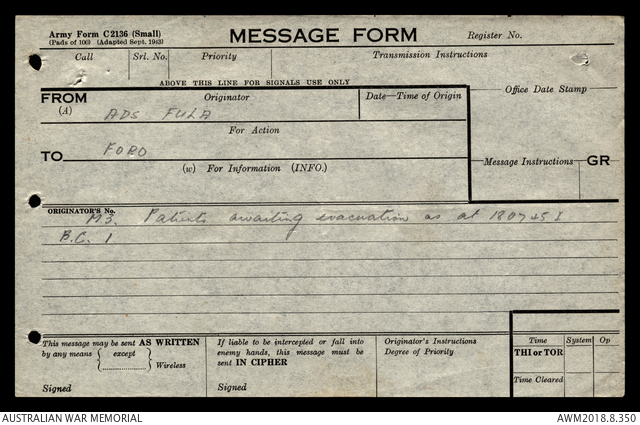 Army Form C2136 (Small)
(Pads of 100) (Adapted Sept. 1943)
MESSAGE FORM
Register No.
Call
Srl. No.
Priority
Transmission Instructions
ABOVE THIS LINE FOR SIGNALS USE ONLY
FROM
(A)
Originator
Date—Time of Origin
Office Date Stamp
ADS FULA
For Action
TO
FORO
(w) For Information (INFO.)
Message Instructions
GR
ORIGINATOR'S No.
M3. Patients awaiting evacuation as at 180745 I
B.C. 1
This message may be sent AS WRITTEN
by any means { except } Wireless
Signed
If liable to be intercepted or fall into
enemy hands, this message must be
sent IN CIPHER
Signed
Originator's Instructions
Degree of Priority
Time
System
Op
THI or TOR
Time Cleared
AUSTRALIAN WAR MEMORIAL
AWM2018.8.350